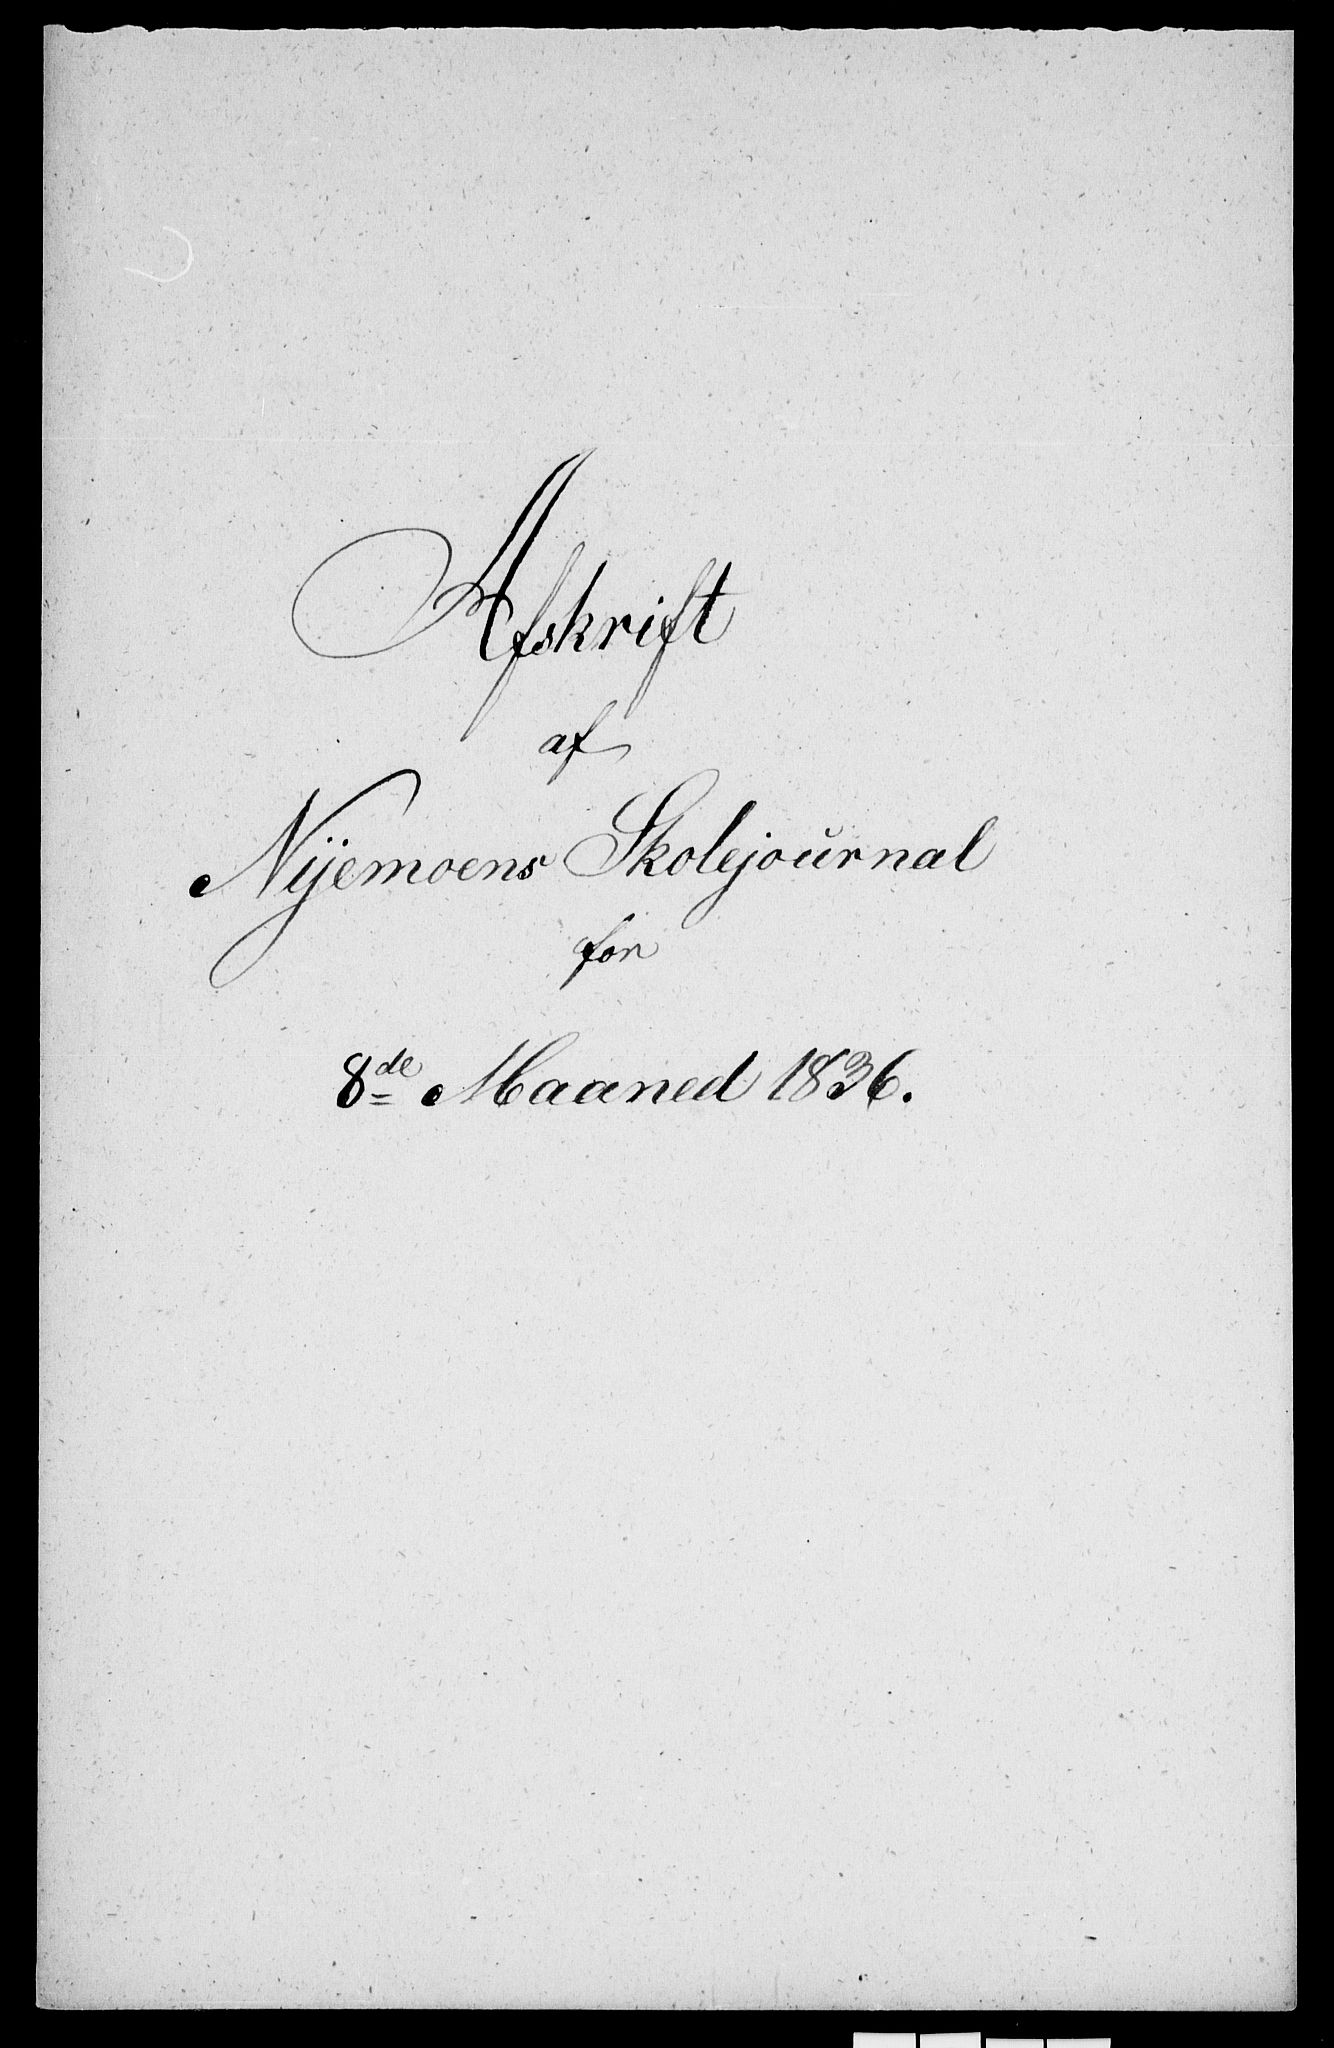 Afskrift
af
Nÿemoens Skolejournal
for
8de Maaned 1836.